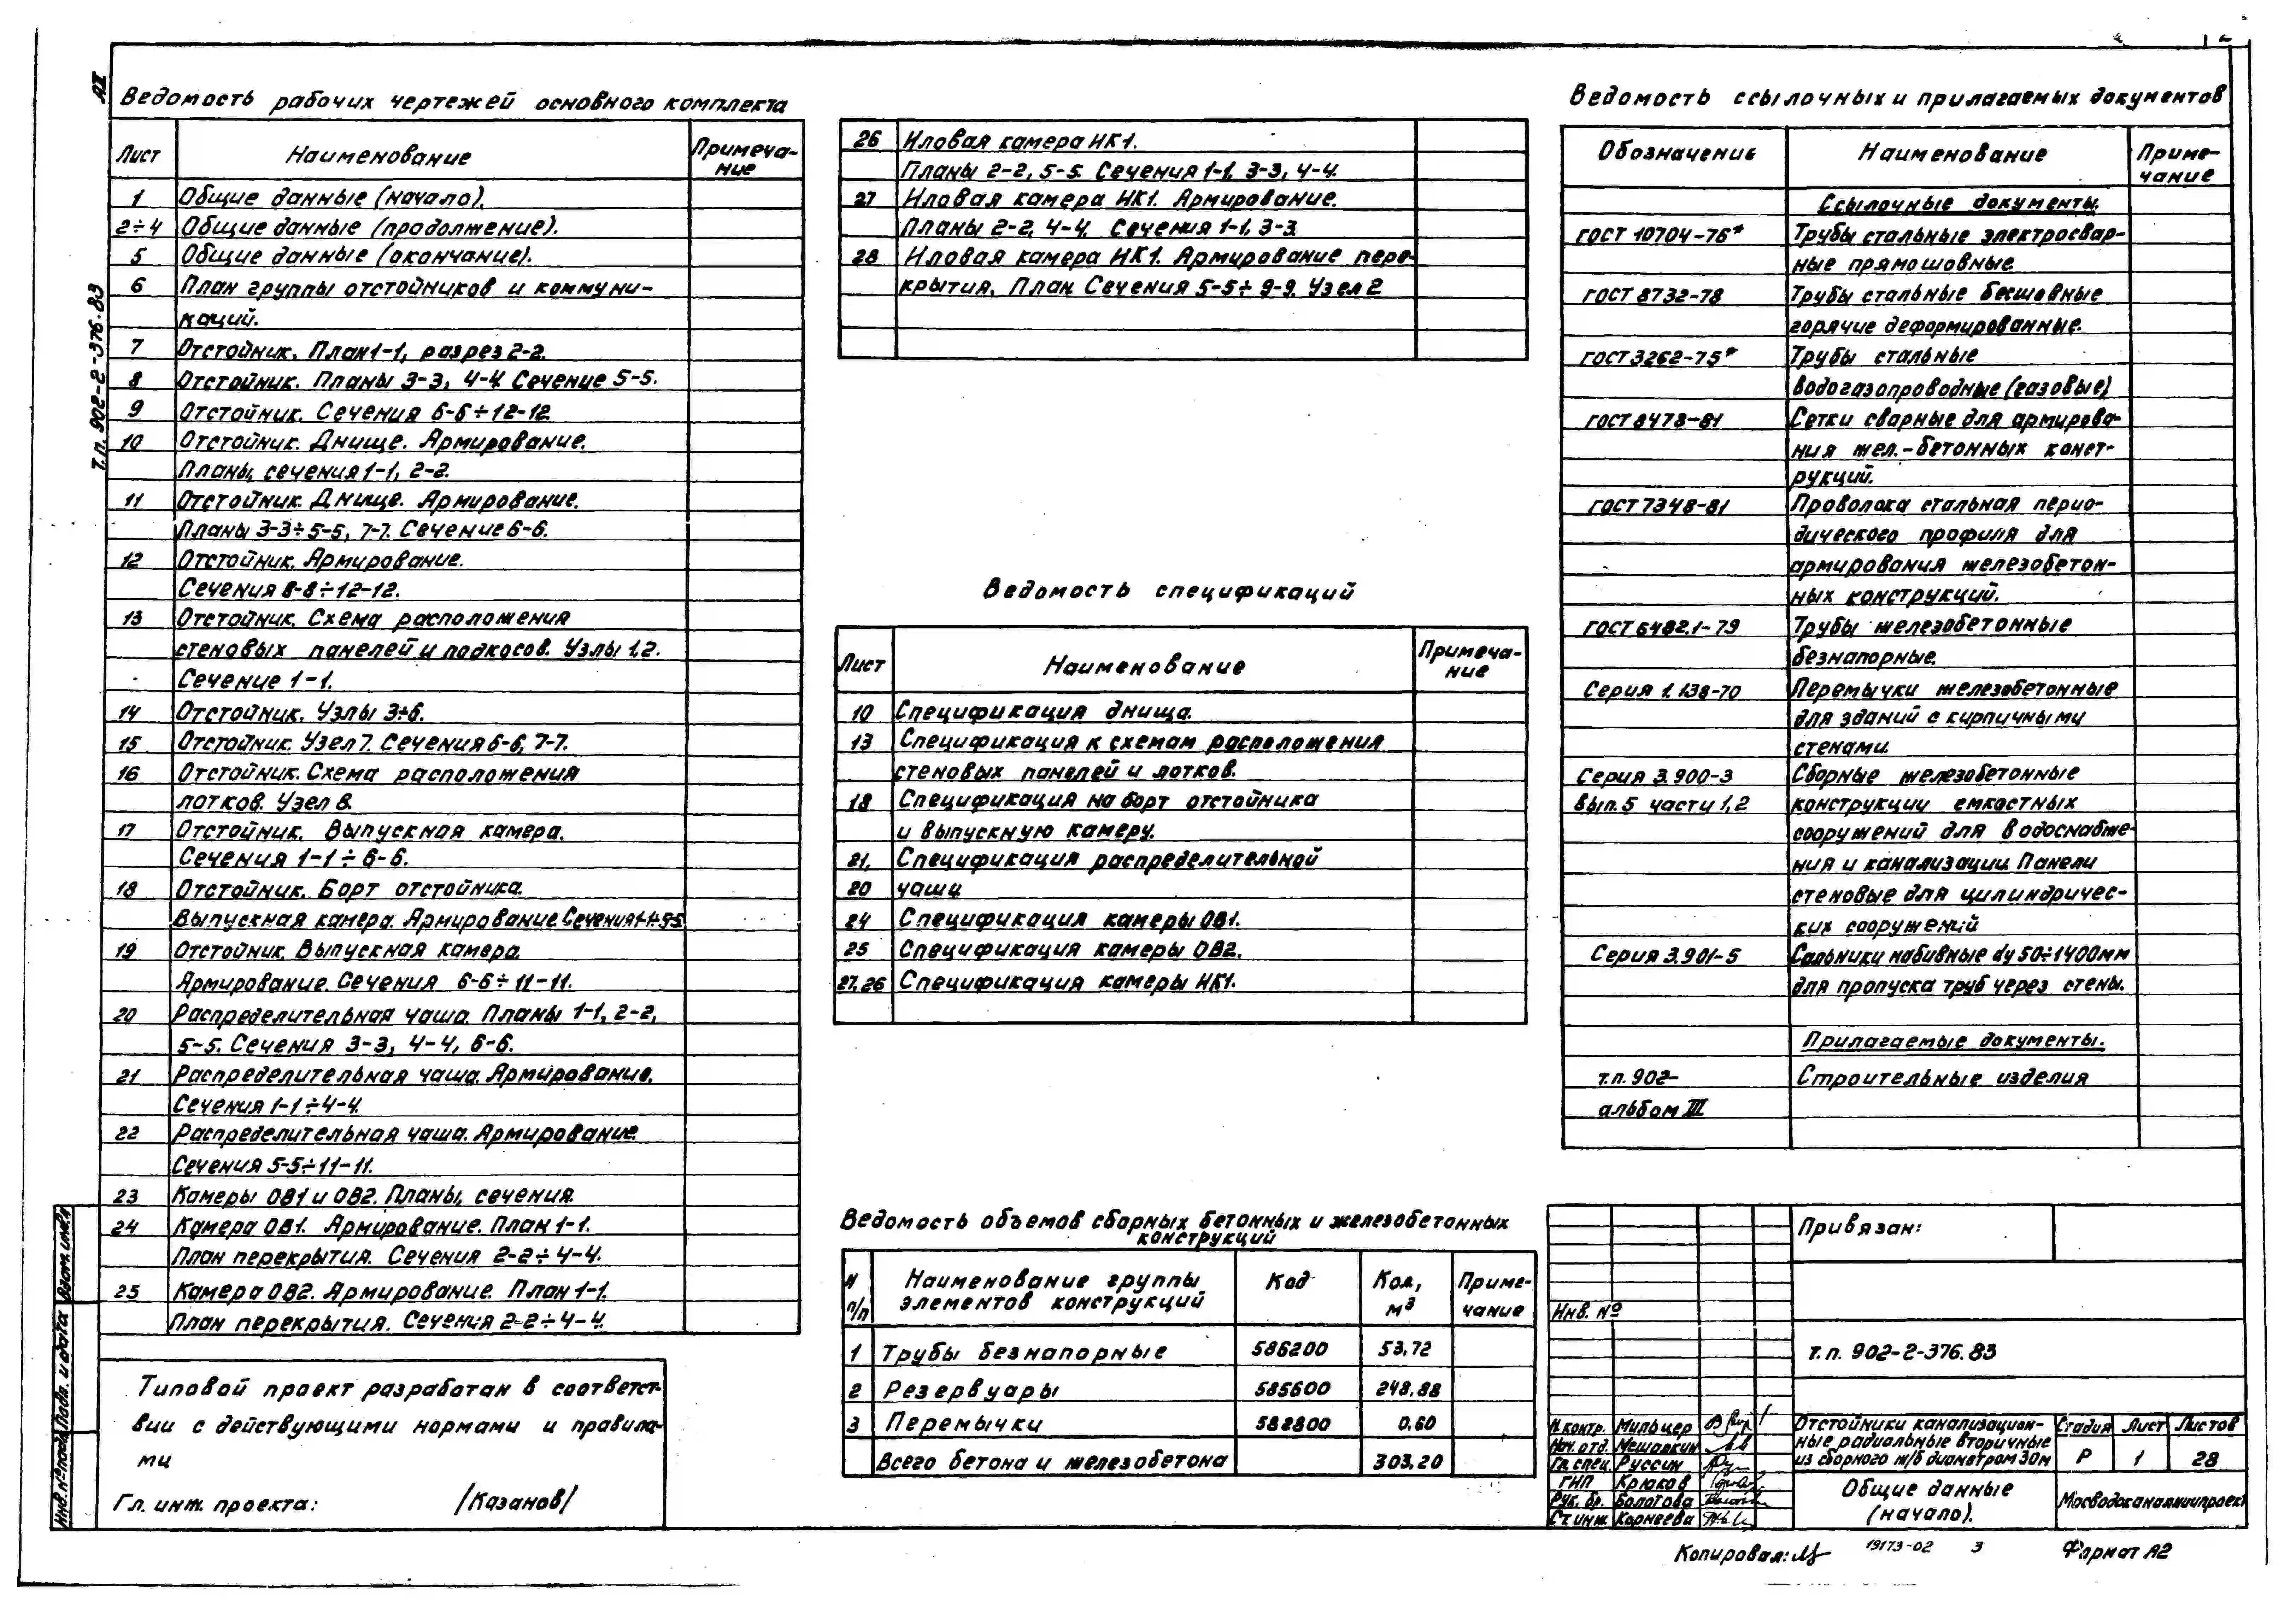 АII
т.п. 902-2-376.83
Ведомость рабочих чертежей основного комплекта
Лист Наименование Примеча-
ние
1 Общие данные (начало).
2÷4 Общие данные (продолжение).
5 Общие данные (окончание).
6 План группы отстойников и коммуни-
каций.
7 Отстойник. План 1-1, разрез 2-2.
8 Отстойник. Планы 3-3, 4-4. Сечение 5-5.
9 Отстойник. Сечения 6-6÷12-12.
10 Отстойник. Днище. Армирование.
Планы, сечения 1-1, 2-2.
11 Отстойник. Днище. Армирование.
Планы 3-3÷5-5, 7-7. Сечение 6-6.
12 Отстойник. Армирование.
Сечения 8-8÷12-12.
13 Отстойник. Схема расположения
стеновых панелей и подкосов. Узлы 1,2.
Сечение 1-1.
14 Отстойник. Узлы 3÷6.
15 Отстойник. Узел 7. Сечения 6-6, 7-7.
16 Отстойник. Схема расположения
лотков. Узел 8.
17 Отстойник. Выпускная камера.
Сечения 1-1÷6-6.
18 Отстойник. Борт отстойника.
Выпускная камера. Армирование. Сечения 1-1÷5-5
19 Отстойник. Выпускная камера.
Армирование. Сечения 6-6÷11-11.
20 Распределительная чаша. Планы 1-1, 2-2,
5-5. Сечения 3-3, 4-4, 6-6.
21 Распределительная чаша. Армирование.
Сечения 1-1÷4-4.
22 Распределительная чаша. Армирование.
Сечения 5-5÷11-11.
23 Камеры ОВ1 и ОВ2. Планы, сечения.
24 Камера ОВ1. Армирование. План 1-1.
План перекрытия. Сечения 2-2÷4-4.
25 Камера ОВ2. Армирование. План 1-1.
План перекрытия. Сечения 2-2÷4-4.
Типовой проект разработан в соответст-
вии с действующими нормами и правила-
ми
Гл. инж. проекта: /Казанов/
26 Иловая камера ИК1.
Планы 2-2, 5-5. Сечения 1-1, 3-3, 4-4.
27 Иловая камера ИК1. Армирование.
Планы 2-2, 4-4. Сечения 1-1, 3-3.
28 Иловая камера ИК1. Армирование пере-
крытия. План. Сечения 5-5÷9-9. Узел 2
Ведомость спецификаций
Лист Наименование Примеча-
ние
10 Спецификация днища.
13 Спецификация к схемам расположения
стеновых панелей и лотков.
18 Спецификация на борт отстойника
и выпускную камеру.
21, Спецификация распределительной
20 чаши
24 Спецификация камеры ОВ1.
25 Спецификация камеры ОВ2.
27,26 Спецификация камеры ИК1.
Ведомость объемов сборных бетонных и железобетонных
конструкций
N п/п Наименование группы элементов конструкций Код Кол, м³ Приме-
чание
1 Трубы безнапорные 586200 53.72
2 Резервуары 585600 248.88
3 Перемычки 582800 0.60
Всего бетона и железобетона 303.20
Ведомость ссылочных и прилагаемых документов
Обозначение Наименование Приме-
чание
Ссылочные документы.
ГОСТ 10704-76* Трубы стальные электросвар-
ные прямошовные.
ГОСТ 8732-78 Трубы стальные бесшовные
горячие деформированные.
ГОСТ 3262-75* Трубы стальные
водогазопроводные (газовые)
ГОСТ 8478-81 Сетки сварные для армирова-
ния жел.-бетонных конст-
рукций.
ГОСТ 7348-81 Проволока стальная перио-
дического профиля для
армирования железобетон-
ных конструкций.
ГОСТ 6482.1-79 Трубы железобетонные
безнапорные.
Серия 1.138-70 Перемычки железобетонные
для зданий с кирпичными
стенами.
Серия 3.900-3 Сборные железобетонные
вып. 5 части 1,2 конструкции емкостных
сооружений для водоснабже-
ния и канализации. Панели
стеновые для цилиндричес-
ких сооружений
Серия 3.901-5 Сальники набивные dy 50÷1400мм
для пропуска труб через стены.
Прилагаемые документы.
т.п. 902- Строительные изделия
альбом III
Привязан:
Инв. №
т.п. 902-2-376.83
Н.контр. Мильцер
Нач. отд. Мешалкин
Гл. спец. Руссин
ГИП Крюков
Рук. бр. Болотова
Ст. инж. Корнеева
Отстойники канализацион-
ные радиальные вторичные
из сборного ж/б диаметром 30м
Стадия Лист Листов
Р 1 28
Общие данные
(начало).
Мосводоканалниипроект
Инв. № подл. Подп. и дата Взам. инв. №
Копировал: 19173-02 3 Формат А2